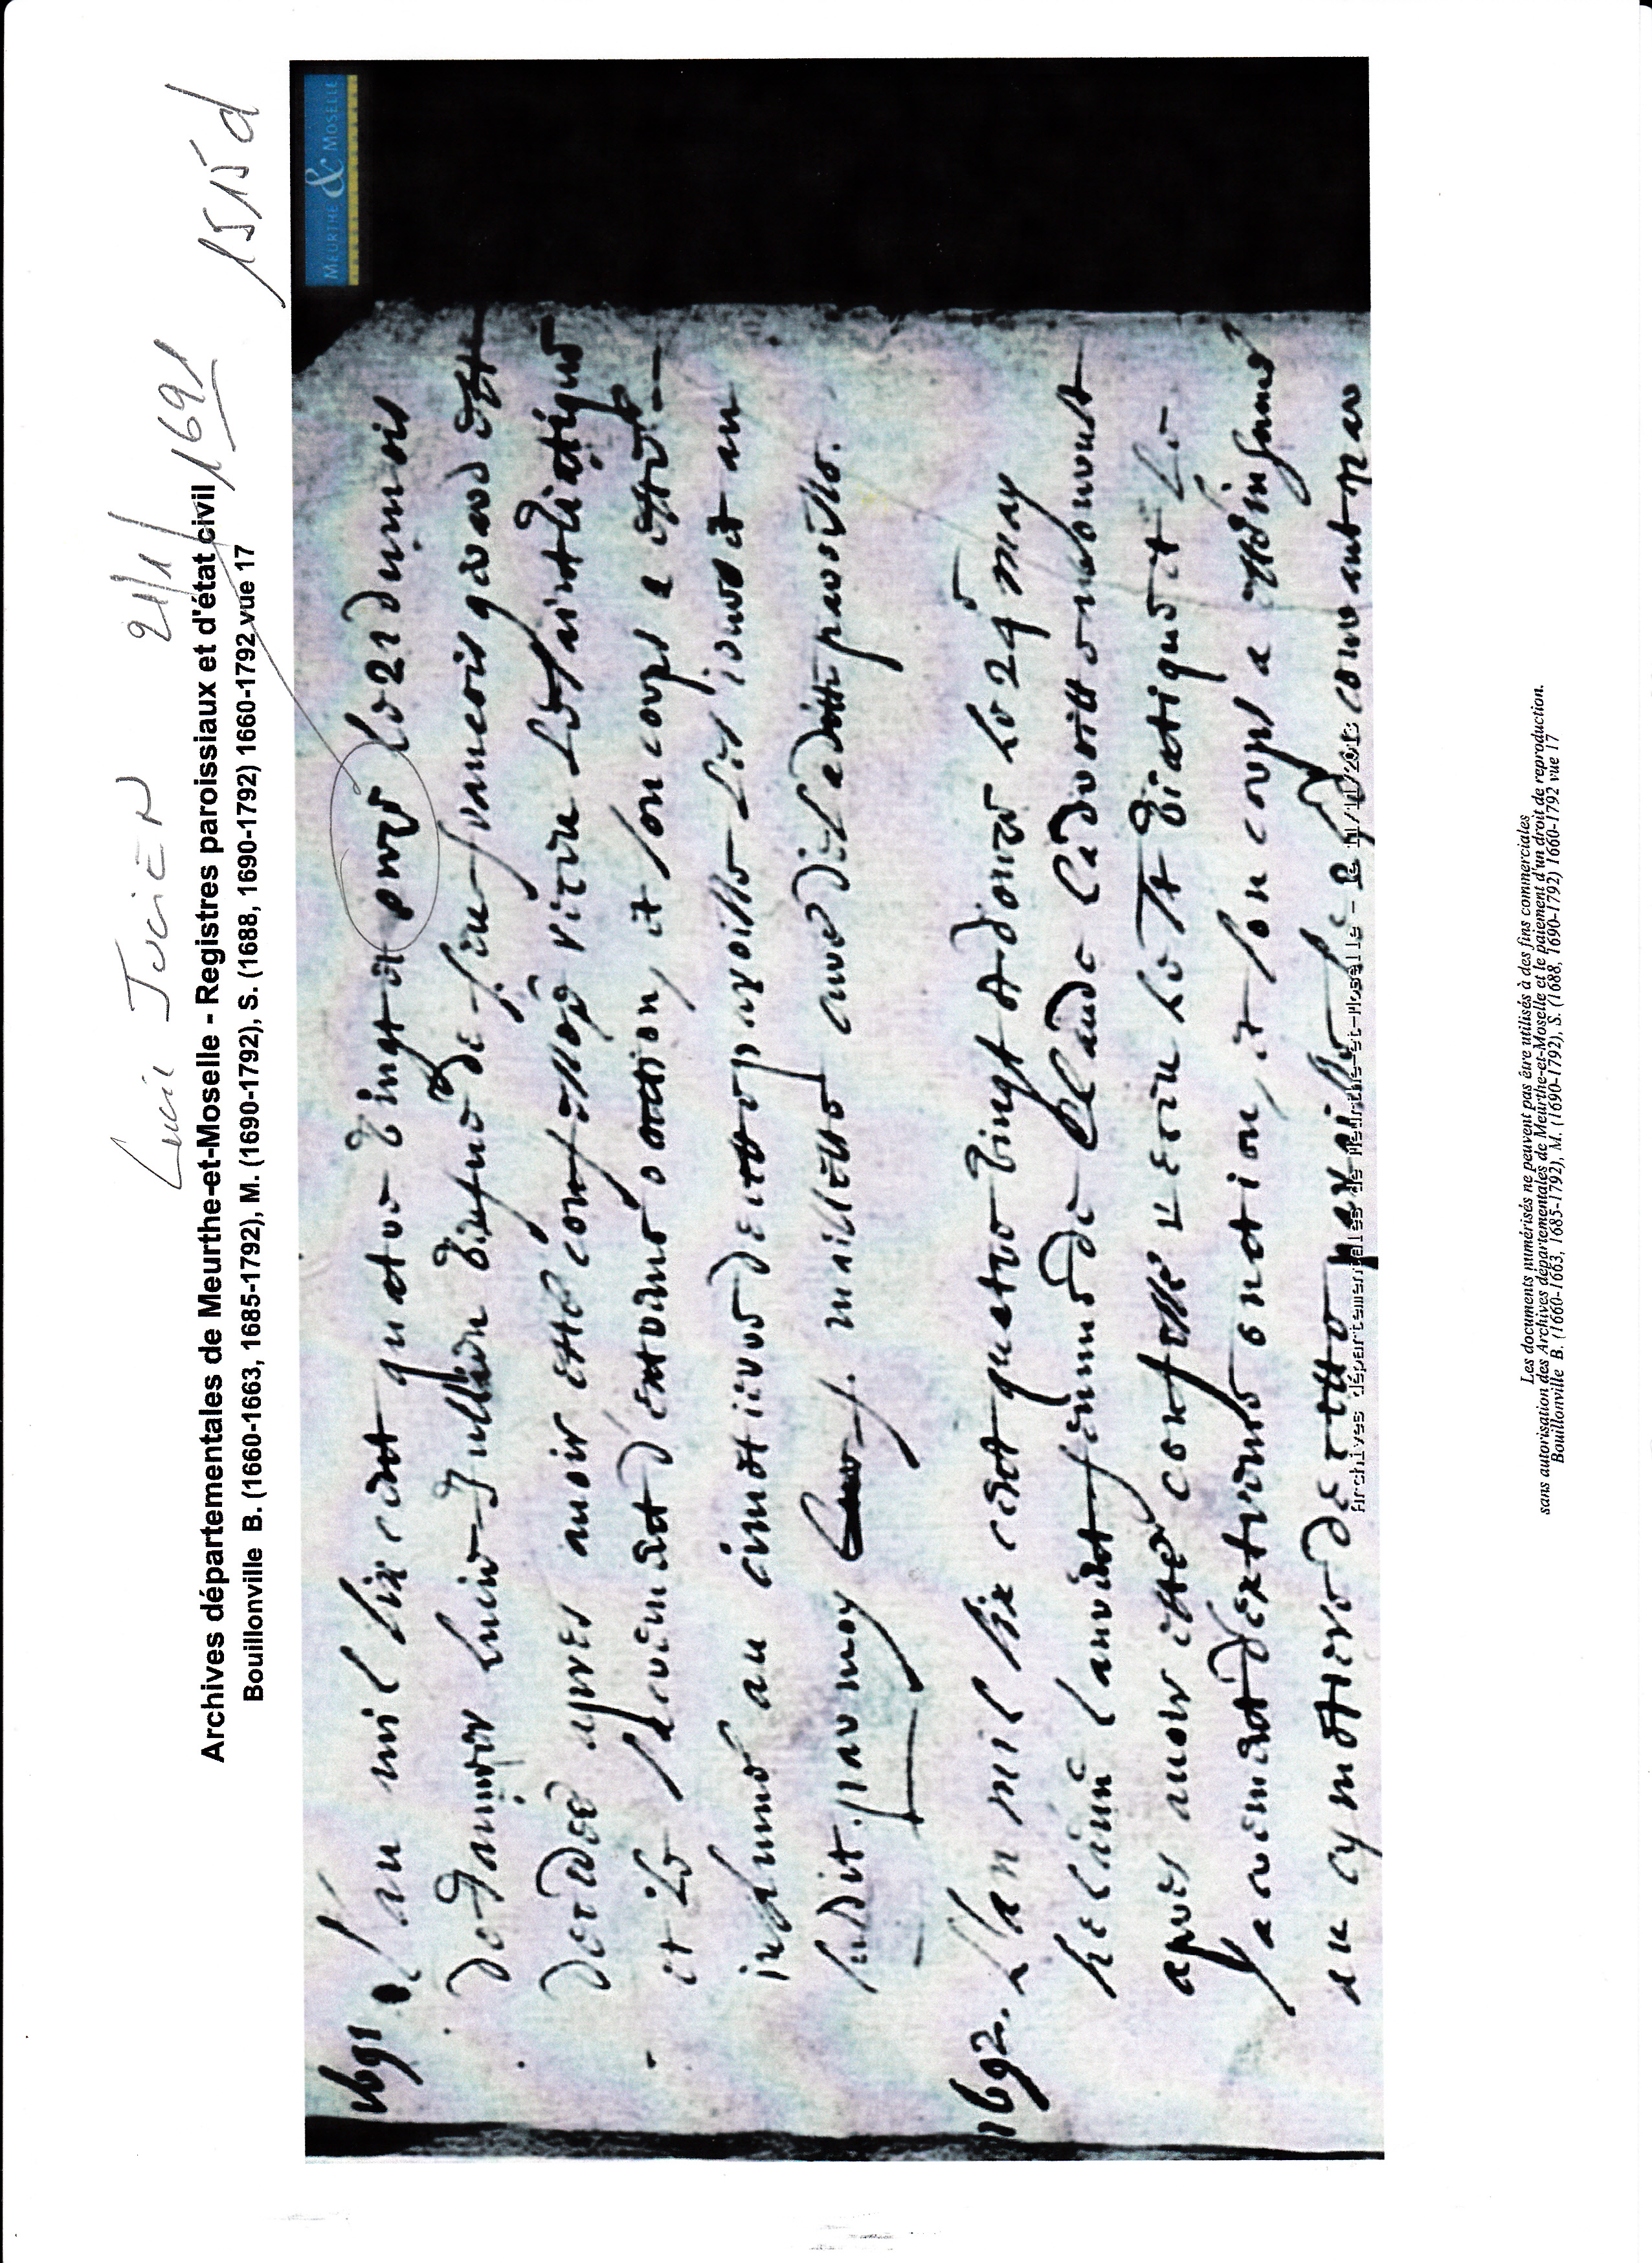 Lucie JULIEN 21/1/1691
1515 d
Archives départementales de Meurthe-et-Moselle - Registres paroissiaux et d'état civil
Bouillonville B. (1660-1663, 1685-1792), M. (1690-1792), S. (1688, 1690-1792) 1660-1792 vue 17
MEURTHE & MOSELLE
1691 Lan mil six cent quatre vingt et onze le 21 du mois
de Janvier Lucie Jullien vefue de feu francois grand est
decedee apres auoir esté confessé receu le saint viatique
et le sacrement d'extreme onction, et son corps a esté
inhumé au cimetiere de cette paroisse les iour et an
susdit par moy maillette curé de laditte paroisse.
1692. Lan mil six cent quatre vingt et douze le 24 may
helaine laurent femme de Claude Ladvoitte mourut
apres auoir este confessé receu le st viatique et le
sacrement dextreme onction, et son corps a este inhumé
au cymetiere de cette paroisse le
Archives départementales de Meurthe-et-Moselle
Les documents numérisés ne peuvent pas être utilisés à des fins commerciales
sans autorisation des Archives départementales de Meurthe-et-Moselle et le paiement d'un droit de reproduction.
Bouillonville B. (1660-1663, 1685-1792), M. (1690-1792), S. (1688, 1690-1792) 1660-1792 vue 17